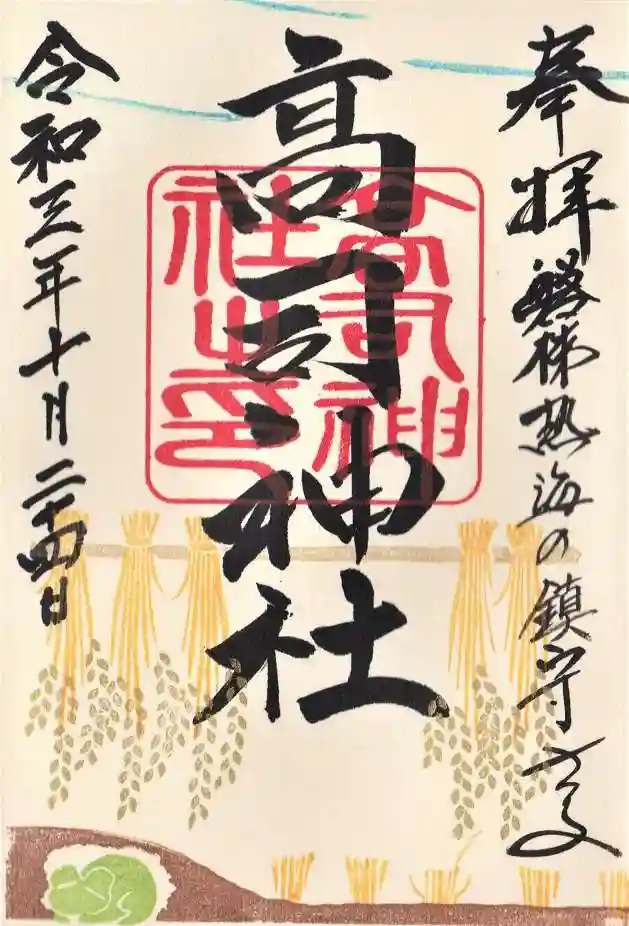 奉拝
磐梯熱海の鎮守さま
高司神社
高司神
社之印
令和三年十月二十四日